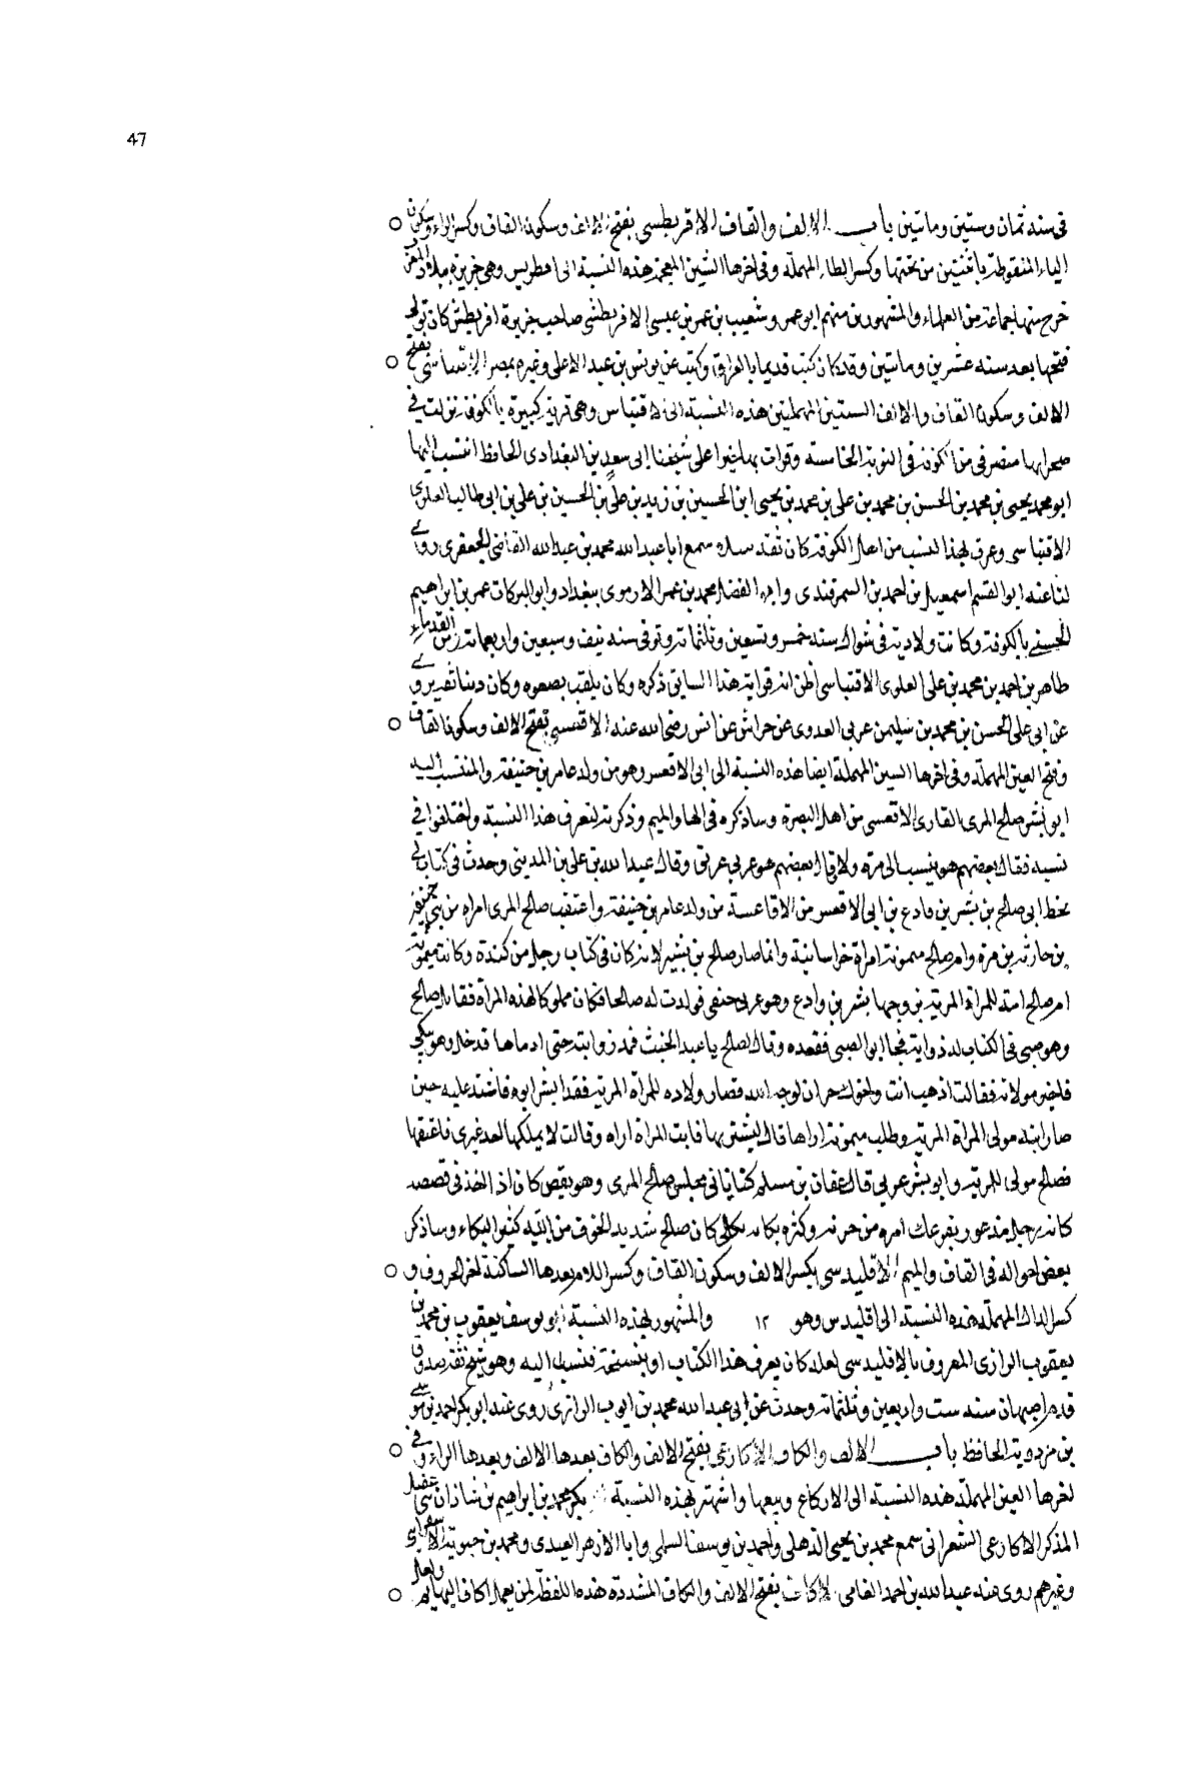 47
فى سنه ثمان وستين وماتين باب الالف والقاف الاقريطسى بفتح الالف وسكون القاف وكسر الراء وسكون
الياء المنقوطة باثنتين من تحتها وكسر الطاء المهملة وفى اخرها الشين المعجمة هذه النسبة الى اقطريس وهى جزيرة ببلاد المغرب
خرج منها جماعة من العلماء والمشهور بن منهم ابو عمر وشعيب بن عمر بن عيسى الاقريطشى صاحب جزيرة اقريطش كان تولى
فتحها بعد سنه عشرين وماتين وقد كان كتب قديما بالعراق وكتب عن يونس بن عبد الاعلى وغيره بمصر الاقساسى بفتح
الالف وسكون القاف والالف السينين المهملتين هذه النسبة الى اقساس وهى قرية كبيرة بالكوفة نزلت فى
صحرايها منصرفى من الكوفة فى النوبة الخامسة وقرات بها خبرا على شيخنا ابى سعد بن البغدادى الحافظ انتسب اليها
ابو محمد يحيى بن محمد بن الحسن بن محمد بن على بن محمد بن يحيى ابن الحسين بن زيد بن على بن الحسين بن على بن ابى طالب العلوى
الاقساسى وعرف بهذا النسب من اهل الكوفة كان ثقة سمع ابا عبد الله محمد بن عبد الله القاضى الجعفرى روى
لنا عنه ابو القسم اسمعيل بن احمد بن السمرقندى وابو الفضل محمد بن عمر الارموى ببغداد وابو البركات عمر بن ابراهيم
الحسنى بالكوفة وكانت ولادته فى شوال سنه خمس وتسعين وثلثماتة وتوفى سنه نيف وسبعين واربعماتة ومن القدماء
طاهر بن احمد بن محمد بن على العلوى الاقساسى اظن انه قرابة هذا السابق ذكره وكان يلقب بصعوه وكان دينا ثقة يروى
عن ابى على الحسن بن محمد بن سليمن عربى العدوى عن حراش عن انس رضى الله عنه الاقعسى بفتح الالف وسكون القاف
وفتح العين المهملة وفى اخرها السين المهملة ايضا هذه النسبة الى ابى الاقعس وهو من ولد عامر بن حنيفة والمنتسب اليه
ابو بشر صالح المرى القارى الاقعسى من اهل البصرة وساذكره فى الها والميم وذكرته لتعرف هذا النسبة واختلفوا فى
نسبه فقال بعضهم هو ينسب الى مرة ولا وقال بعضهم هو عربى عريق وقال عبد الله بن على بن المدينى وجدت فى كتاب ابى
بخط ابى صالح بن بشر بن وادع بن ابى الاقعس من الاقاعسة من ولد عامر بن حنيفة واعتقت صالح المرى امراه من بنى حنيفة
بن حارثه بن مرة وام صالح ميمونة امراة خراسانية وانما صار صالح بن بشير لانه كان فى كتاب رجل من كندة وكانت ميمونة
ام صالح امة للمراة المرية زوجها بشر بن وادع وهو عربى حنفى فولدت له صالحا فكان مملوكا لهذه المراة فقال صالح
وهو صبى فى الكتاب له ذوابة فجا ابو الصبى فقعده وقال لصالح يا عبد الخبث فمد ذوابته حتى ادماها فدخل وهو يبكى
فاخبر مولاته فقالت اذهب انت واخوك حران لوجه الله فصار ولاده للمراة المرية فقدا بشر ابوه فاشتد عليه حين
صار ابنه مولى المراة المرية وطلب ميمونة اراها قال ليشتريها فابت المراة اراه وقالت لا يملكها احد غيرى فاعتقها
فصالح مولى المرية وابو بشر عربى قال عفان بن مسلم كنا ياتى مجلس صالح المرى وهو يقص كان اذ اخذ فى قصصه
كانه رجل مذعور يفزعك امره من حزنه وكثره بكايه بكالى كان صالح شديد الخوف من الله كثير البكاء وساذكر
بعض احواله فى القاف والميم الاقليدسى بكسر الالف وسكون القاف وكسر اللام بعدها الساكنة اخر الحروف و
كسر الدال المهملة هذه النسبة الى اقليدس وهو ١٢ والمشهور بهذه النسبة ابو يوسف يعقوب بن محمد بن
يعقوب الرازى المعروف بالاقليدسى لعله كان يعرف هذا الكتاب او ينسخه فنسب اليه وهو شيخ ثقة صدوق
قدم اصبهان سنه ست واربعين وثلثماتة وحدث عن ابى عبد الله محمد بن ايوب الرازى روى عنه ابو بكر احمد بن موسى
بن مردوية الحافظ باب الالف والكاف الاكارعى بفتح الالف والكاف بعدها الالف وبعدها الراء وفى
اخرها العين المهملة هذه النسبة الى الاركاع وبيعها واشتهر بهذه النسبة بكر محمد بن ابراهيم بن شاذان بنى عقيل
المذكر الاكارعى الشعرانى سمع محمد بن يحيى الذهلى واحمد بن يوسف السلمى وابا الازهر العبدى ومحمد بن حيوية الاسفراينى
وغيرهم روى عنه عبد الله بن احمد الفامى الاكاف بفتح الالف والكاف المشددة هذه اللفظة لمن يعمل اكاف البهايم ولعل